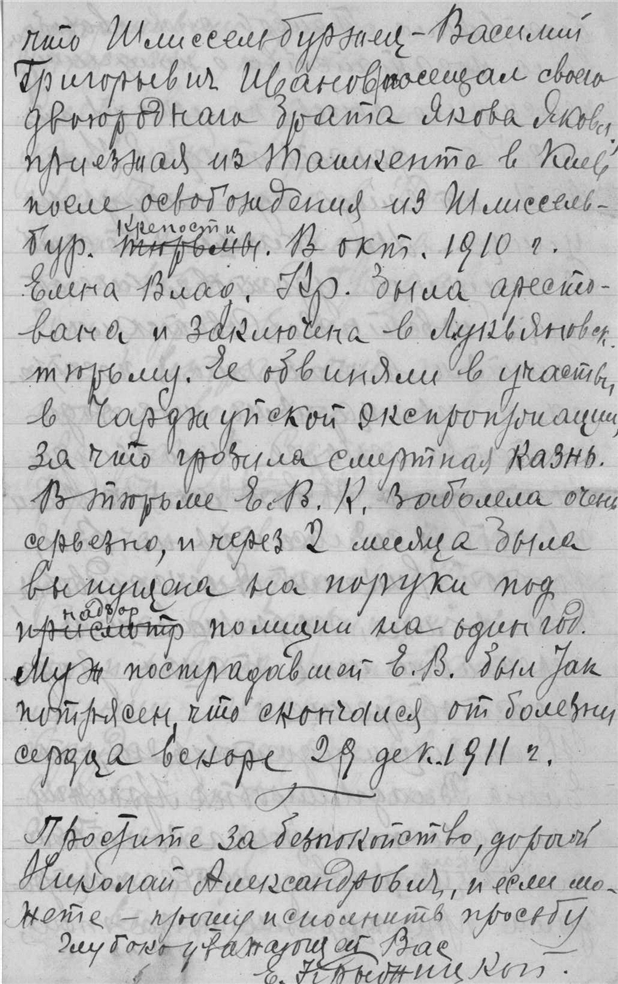 что Шлиссельбуржец - Василий
Григорьевич Иванов посещал своего
двоюроднаго брата Якова Яковл.,
приезжая из Ташкента в Киев
после освобождения из Шлиссель-
бур. тюрьмы. В окт. 1910 г.
крепости
Елена Влад. Кр. была аресто-
вана и заключена в Лукьяновск.
тюрьму. Ее обвиняли в участьи
в Чарджуйской экспроприации,
за что грозила смертная казнь.
В тюрьме Е. В. К. заболела очень
серьезно, и через 2 месяца была
выпущена на поруки под
надзор
присмотр полиции на один год.
Муж пострадавшей Е. В. был так
потрясен, что скончался от болезни
сердца вскоре 29 дек. 1911 г.
Простите за безпокойство, дорогой
Николай Александрович, и если мо-
жете - прошу исполнить просьбу
глубокоуважающей Вас
Е.